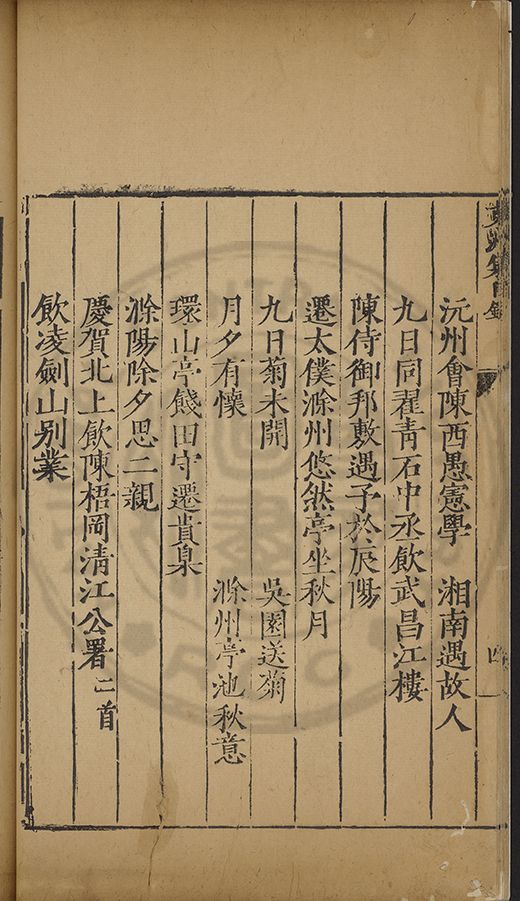 集目錄
四
沅州會陳西愚憲學　湘南遇故人
九日同翟青石中丞飲武昌江樓
陳侍御邦敷遇予於辰陽
遷太僕滁州悠然亭坐秋月
九日菊未開　吳園送菊
月夕有懷　滁州亭池秋意
環山亭餞田守遷貴臬
滁陽除夕思二親
慶賀北上飲陳梧岡清江公署二首
飲凌劍山別業